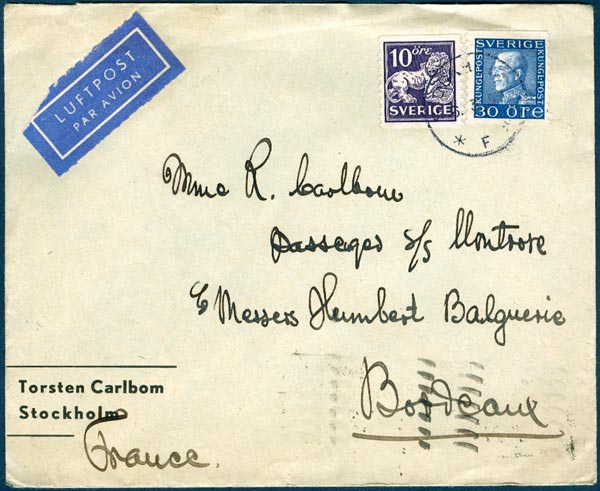 LUFTPOST
PAR AVION
10 ÖRE
SVERIGE
SVERIGE
KUNGL·POST
KUNGL·POST
30 ÖRE
* F
Mme R. Carlbom
Passeger s/s Montrose
Messers Humbert Balguerie
Bordeaux
Torsten Carlbom
Stockholm
France.